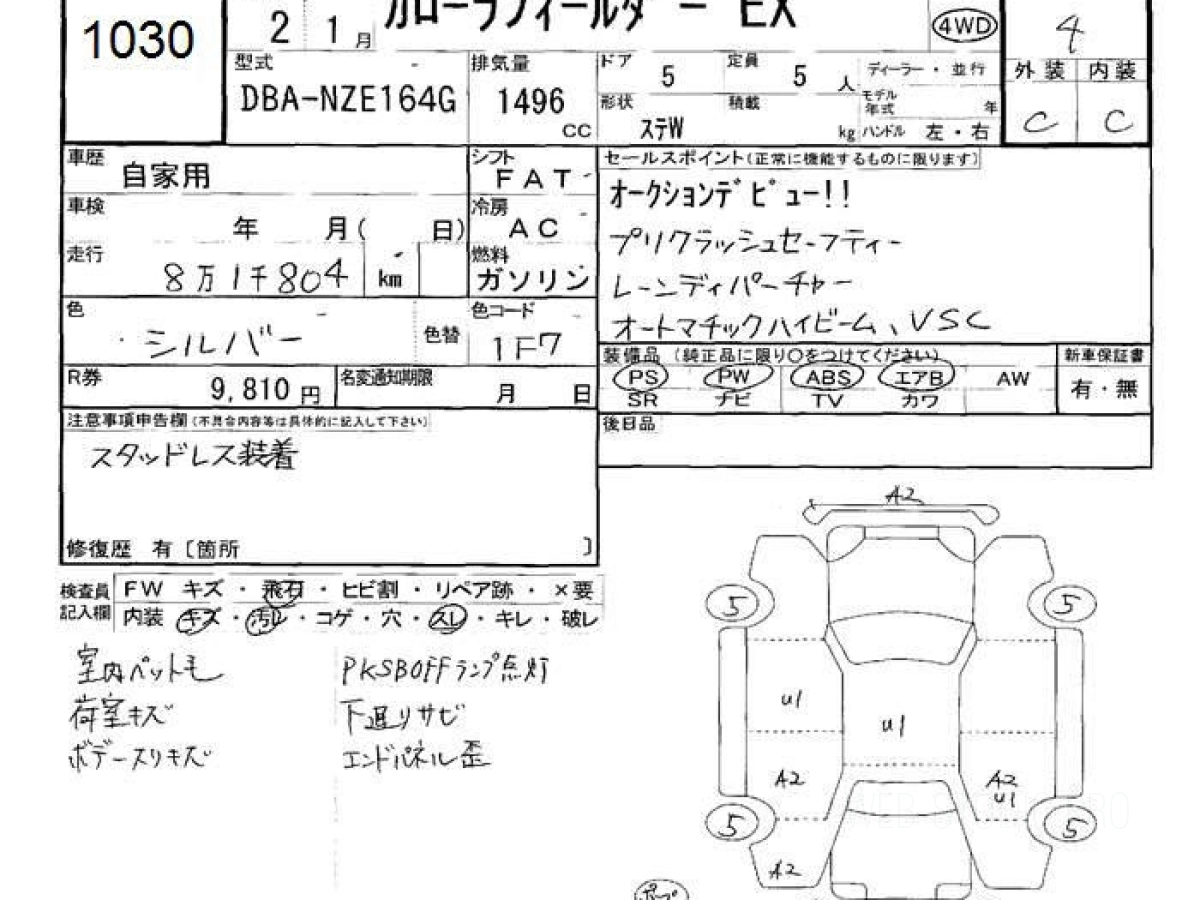 1030
2 1月
カローラフィールダー EX
4WD
4
型式
DBA-NZE164G
排気量
1496
CC
ドア 5
定員 5 人
形状 ステW
積載 kg
ディーラー・並行
モデル年式 年
ハンドル 左・右
外装 内装
C C
車歴 自家用
シフト FAT
車検 年 月( 日)
冷房 AC
走行 8万1千804 km
燃料 ガソリン
色 シルバー
色替
色コード 1F7
R券 9,810円
名変通知期限 月 日
セールスポイント(正常に機能するものに限ります)
オークションデビュー!!
プリクラッシュセーフティー
レーンディパーチャー
オートマチックハイビーム、VSC
装備品 (純正品に限り○をつけてください)
PS PW ABS エアB AW
SR ナビ TV カワ
新車保証書
有・無
後日品
注意事項申告欄(不具合内容等は具体的に記入して下さい)
スタッドレス装着
修復歴 有〔箇所 〕
検査員記入欄
FW キズ・飛石・ヒビ割・リペア跡・×要
内装 キズ・汚レ・コゲ・穴・スレ・キレ・破レ
室内ペット毛
荷室キズ
ボデースリキズ
PKSBOFFランプ点灯
下廻りサビ
エンドパネル歪
A2
5 5
U1
U1
A2
A2
U1
5 5
A2